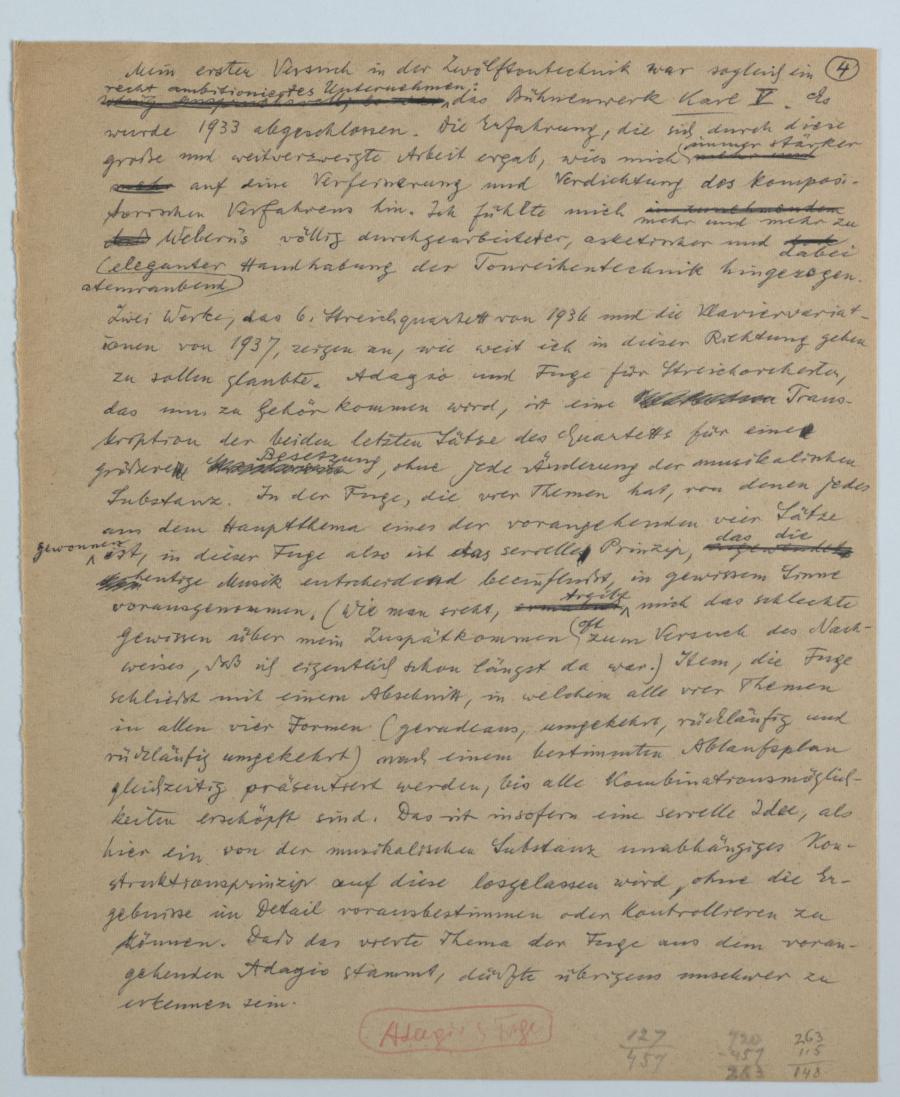 Mein erster Versuch in der Zwölftontechnik war sogleich ein ④
recht ambitioniertes Unternehmen:
das Bühnenwerk Karl V. Es
wurde 1933 abgeschlossen. Die Erfahrung, die sich durch diese
immer stärker
große und weitverzweigte Arbeit ergab, wies mich mehr und
mehr auf eine Verfeinerung und Verdichtung des komposi-
torischen Verfahrens hin. Ich fühlte mich in zunehmendem
mehr und mehr zu
Weberns völlig durchgearbeiteter, asketischer und
dabei
(eleganter Handhabung der Tonreihentechnik hingezogen.
atemraubend)
Zwei Werke, das 6. Streichquartett von 1936 und die Klaviervariat-
ionen von 1937, zeigen an, wie weit ich in dieser Richtung gehen
zu sollen glaubte. Adagio und Fuge für Streichorchester,
das nun zu Gehör kommen wird, ist eine Trans-
kription der beiden letzten Sätze des Quartetts für eine
Besetzung
größere, ohne jede Änderung der musikalischen
Substanz. In der Fuge, die vier Themen hat, von denen jedes
aus dem Hauptthema eines der vorangehenden vier Sätze
gewonnen das die
ist, in dieser Fuge also ist das serielle Prinzip,
heutige Musik entscheidend beeinflusst, in gewissem Sinne
treibt
vorausgenommen. (Wie man sieht, mich das schlechte
oft
Gewissen über mein Zuspätkommen zum Versuch des Nach-
weises, daß ich eigentlich schon längst da war.) Item, die Fuge
schließt mit einem Abschnitt, in welchem alle vier Themen
in allen vier Formen (geradeaus, umgekehrt, rückläufig und
rückläufig umgekehrt) nach einem bestimmten Ablaufsplan
gleichzeitig präsentiert werden, bis alle Kombinationsmöglich-
keiten erschöpft sind. Das ist insofern eine serielle Idee, als
hier ein von der musikalischen Substanz unabhängiges Kon-
struktionsprinzip auf diese losgelassen wird, ohne die Er-
gebnisse im Detail vorausbestimmen oder kontrollieren zu
können. Daß das vierte Thema der Fuge aus dem voran-
gehenden Adagio stammt, dürfte übrigens unschwer zu
erkennen sein.
Adagio & Fuge
127 720 263
457 -457 115
263 148